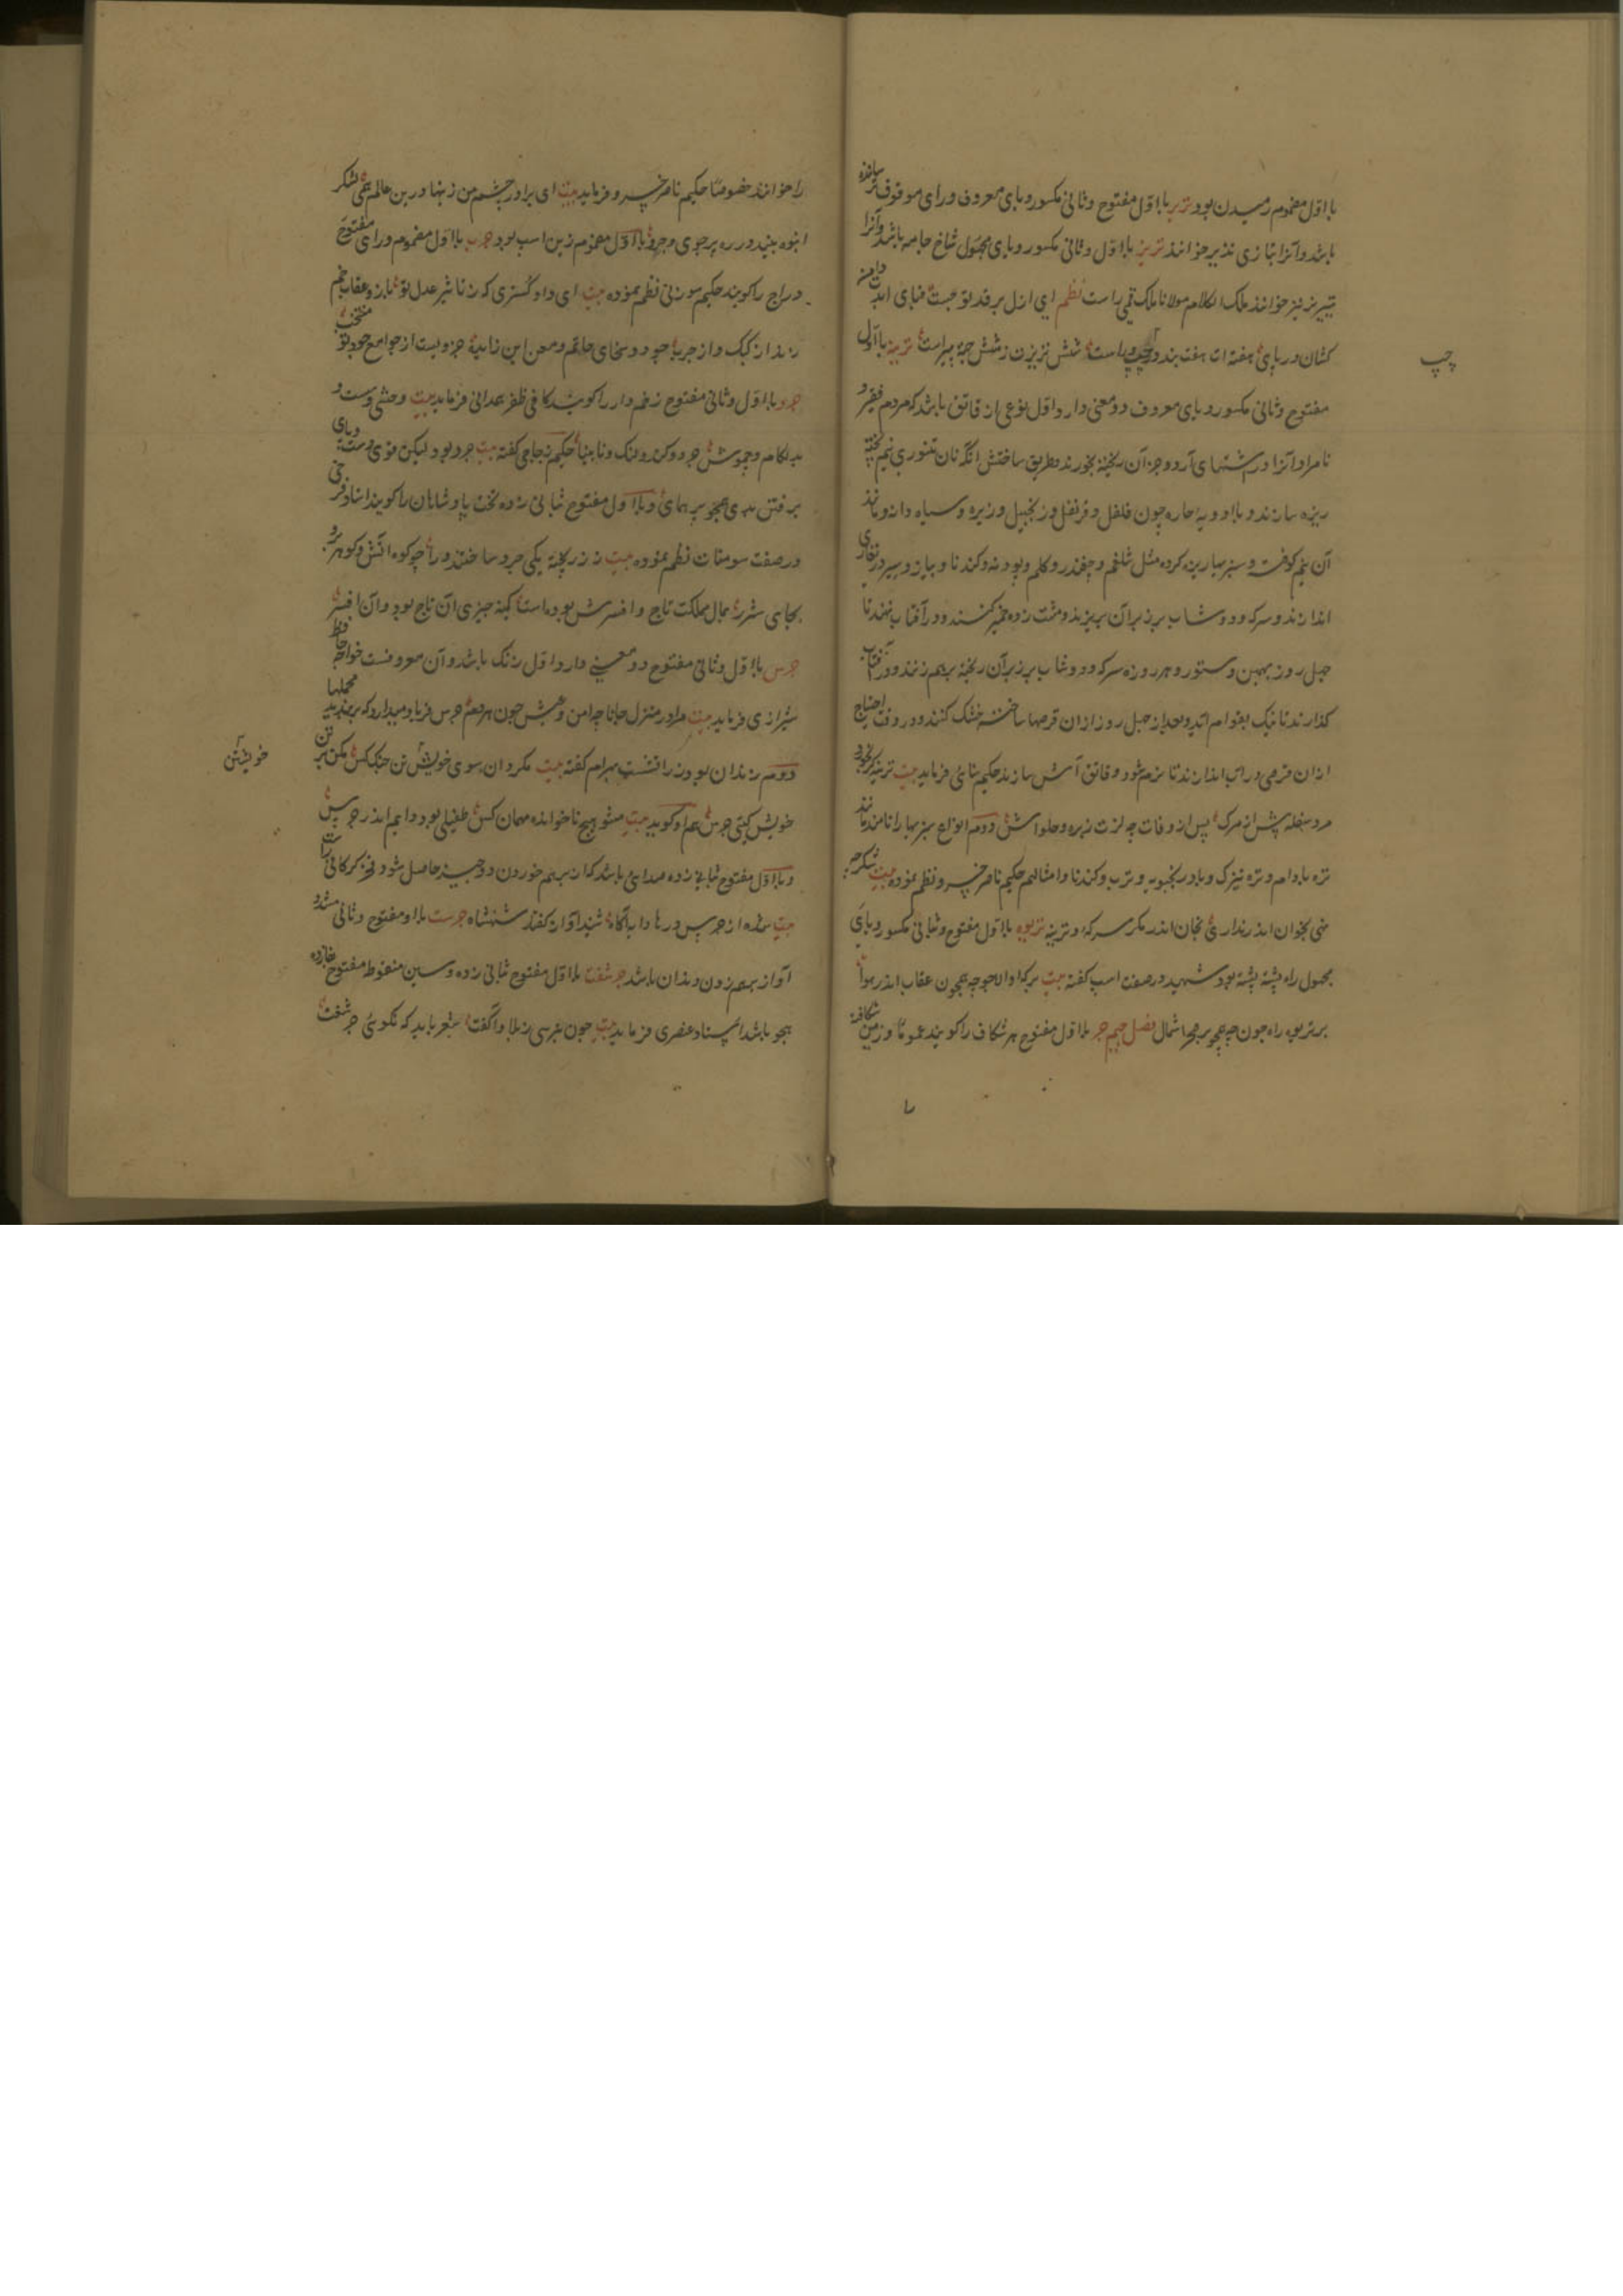 با اول مضموم رسیدن بود تریر با اول مفتوح و ثانی مکسور و یای معروف و رای موقوف ترساننده
باشد و آنرا بتازی نذیر خوانند تریز با اول و ثانی مکسور و یای مجهول شاخ جامه باشد و آنرا
تیریز نیز خوانند ملک الکلام مولانا ملک قمی راست نظم ای ازل بر قد تو چست قبای ابد دامن
کشان در پای هفته ات هفت بند و چپ و راست شش تریزت ز شش جهة پیراست ترینه با اول
چپ
مفتوح و ثانی مکسور و یای معروف دو معنی دارد اول نوعی از قاتق باشد که مردم فقیر و
نامراد آنرا در آشهای آرد و جز آن ریخته بخورند و طریق ساختنش آنکه نان تنوری نیم پخته
ریزه سازند و با ادویه حاره چون فلفل و قرنفل و زنجبیل و زیره و سیاه دانه و مانند
آن نیم کوفته و سبزیها ریزه کرده مثل شلغم و چغندر و کلم و پودنه و کندنا و پیاز و سیر در تغاری
اندازند و سرکه و دوشاب بر زبر آن بریزند و مشت زده خمیر کنند و در آفتاب نهند تا
چهل روز بهمین دستور و هر روزه سرکه و دوشاب بر زبر آن ریخته بر هم زنند و در آفتاب
گذارند تا نیک بقوام آید و بعد از چهل روز از آن قرصها ساخته خشک کنند و در وقت احتیاج
از آن قرصی در آب اندازند تا نرم شود و قاتق آش سازند حکیم سنائی فرماید بیت ترینه
مرد سفله پیش از مرگ پس از وفات چه لذت زیره و حلواش دوم انواع سبزیها را نامند مانند
تره بادام و تره تیزک و بادرنجبویه و ترب و کندنا و امثالهم حکیم ناصر خسرو نظم نموده بیت
نهی بخوان اندر نداری نخان اندر مگر سرکه و ترینه تریوه با اول مفتوح و ثانی مکسور و یای
مجهول راه پشته پشته بود شهید در صفت اسب گفته بیت همچون عقاب اندر هوا
بر تریوه راه چون چه همچو بر صحرا شمال فصل جیم جر با اول مفتوح هر شکاف را گویند عموما و زمین شکافته
را خوانند خصوصا حکیم ناصر خسرو فرماید بیت ای برادر چشم من زینها درین عالم همی لشکر
انبوه بیند در ره پر جوی و جر و با اول مضموم زین اسب بود جرب با اول مضموم و رای مفتوح
دراج را گویند حکیم سوزنی نظم نموده بیت ای دادگستری که ز تأثیر عدل تو باز و عقاب خم
زند از کبک و از جرب جود و سخای حاتم و معن ابن زایده جزویست از جوامع جود تو منتخب
جرد با اول و ثانی مفتوح زخم دار را گویند کافی ظفر همدانی فرماید بیت وحشی و سست و
بد لگام و جموش جرد و کند و لنگ و نابینا حکیم زجاجی گفته بیت جرد بود لیکن قوی دست و پای
برفتن بدی همچو پر همای و با اول مفتوح ثانی زده تخت پادشاهان را گویند استاد فرخی
در صفت سومنات نظم نموده بیت ز زر پخته یکی جرد ساختند و را چو کوه آتش و گوهر برو
بجای شرر بمال مملکت تاج و افسرش بوده است کمینه چیزی آن تاج بود و آن افسر
جرس با اول و ثانی مفتوح دو معنی دارد اول زنگ باشد و آن معروفست خواجه حافظ
شیرازی فرماید بیت مرا در منزل جانان چه امن و عیش چون هر دم جرس فریاد میدارد که بربندید محملها
دوم زندان بود زرتشت بهرام گفته بیت مگردان سوی خویش تن جنگ کس مکن بر تن
خویشتن
خویش گیتی جرس هم او گوید بیت مشو هیچ ناخوانده مهمان کس طفیلی بود دایم اندر جرس
و با اول مفتوح ثانی زده صدائی باشد که از بهم خوردن دو چیز حاصل شود فخر گرگانی راست
بیت شده از جرس درها دایه آگاه شنید آواز گفتار شهنشاه جرست با اول مفتوح و ثانی مشدد
آواز بهم زدن دندان باشد جرشفت با اول مفتوح ثانی زده و سین منقوط مفتوح بفا زده
هجو باشد استاد عنصری فرماید بیت چون نترسی ز بلا وا گفت شعر باید که نگوئی جرشفت